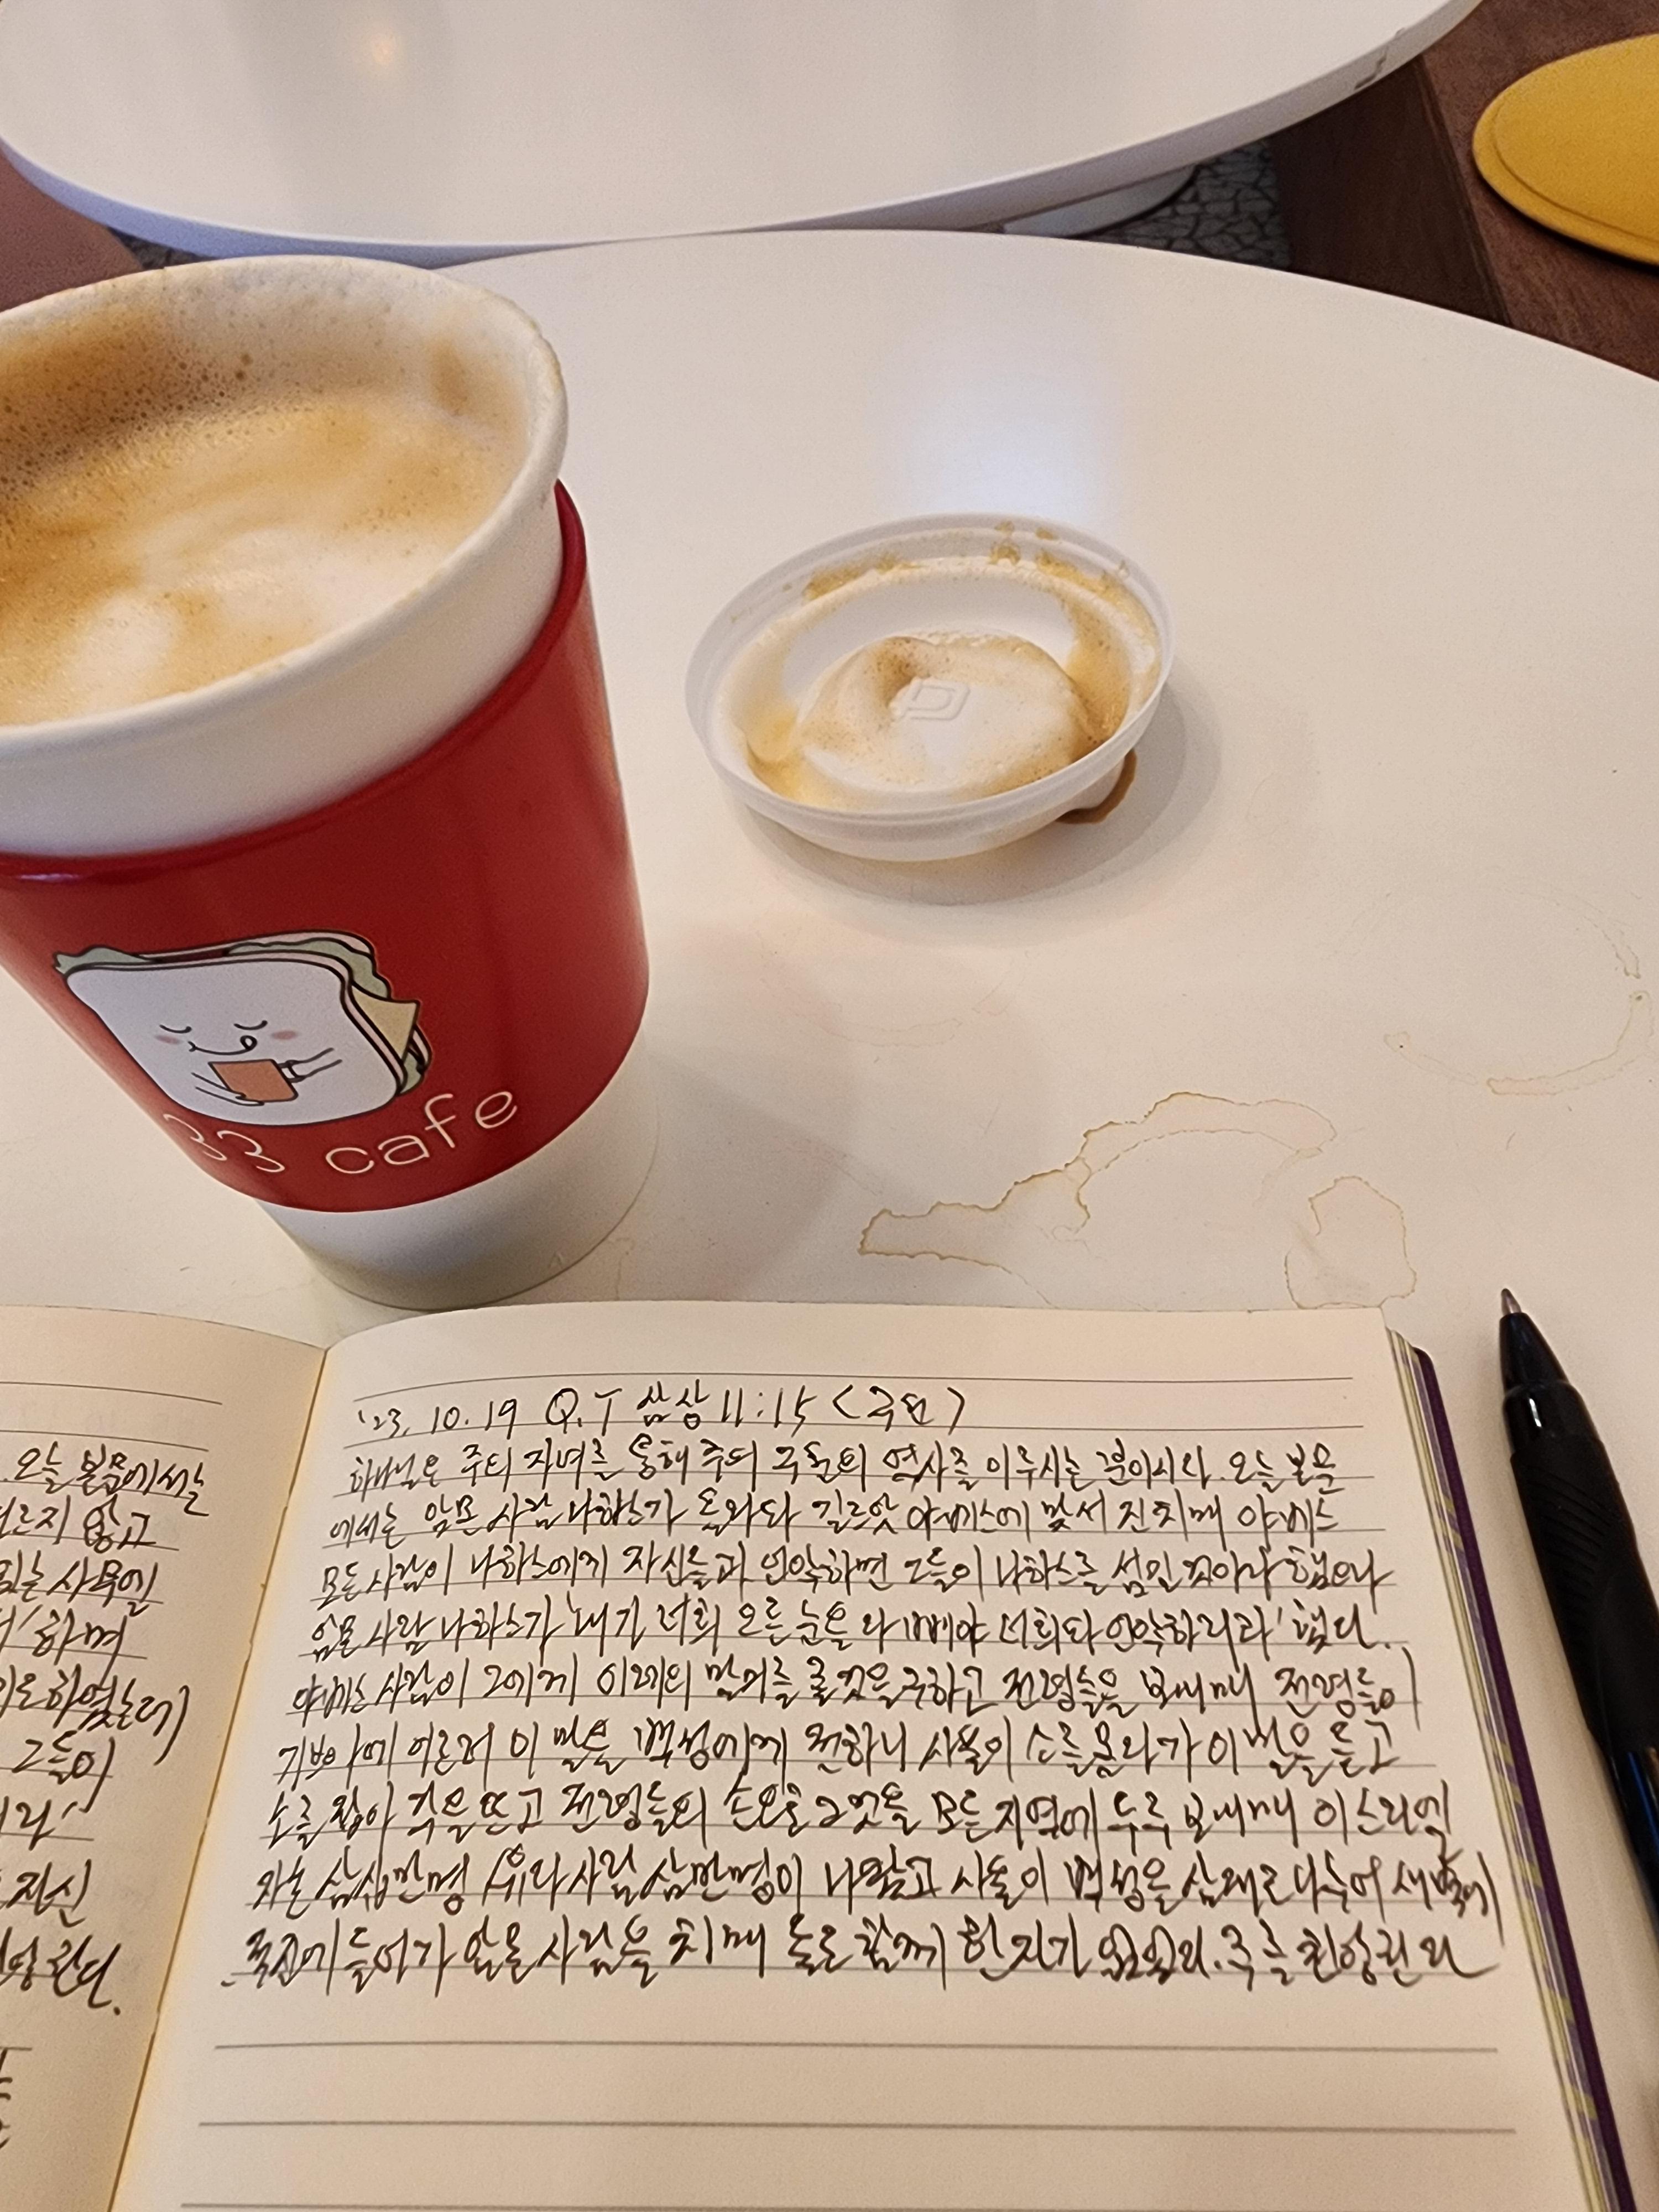 33 cafe
오늘 본문에서는
않고
사무엘
하며
하였는데
그들이
자신
'23. 10. 19 Q.T 삼상 11:15 <구원>
하나님은 주의 자녀를 통해 주의 구원의 역사를 이루시는 분이시라. 오늘 본문
에서는 암몬 사람 나하스가 올라와 길르앗 야베스에 맞서 진치매 야베스
모든 사람이 나하스에게 자신들과 언약하면 그들이 나하스를 섬길 것이라 했으나
암몬 사람 나하스가 '내가 너희 오른 눈을 다 빼야 너희와 언약하리라' 했다.
야베스 사람이 그에게 이레의 말미를 줄 것을 구하고 전령들을 보내매 전령들이
기브아에 이르러 이 말을 백성에게 전하니 사울이 소를 몰다가 이 말을 듣고
소를 잡아 각을 뜨고 전령들의 손으로 그것을 모든 지역에 두루 보내매 이스라엘
자손 삼십만명 유다 사람 삼만명이 나왔고 사울이 백성을 삼대로 나누어 새벽에
적진에 들어가 암몬 사람을 치매 둘도 함께 한 자가 없었다.